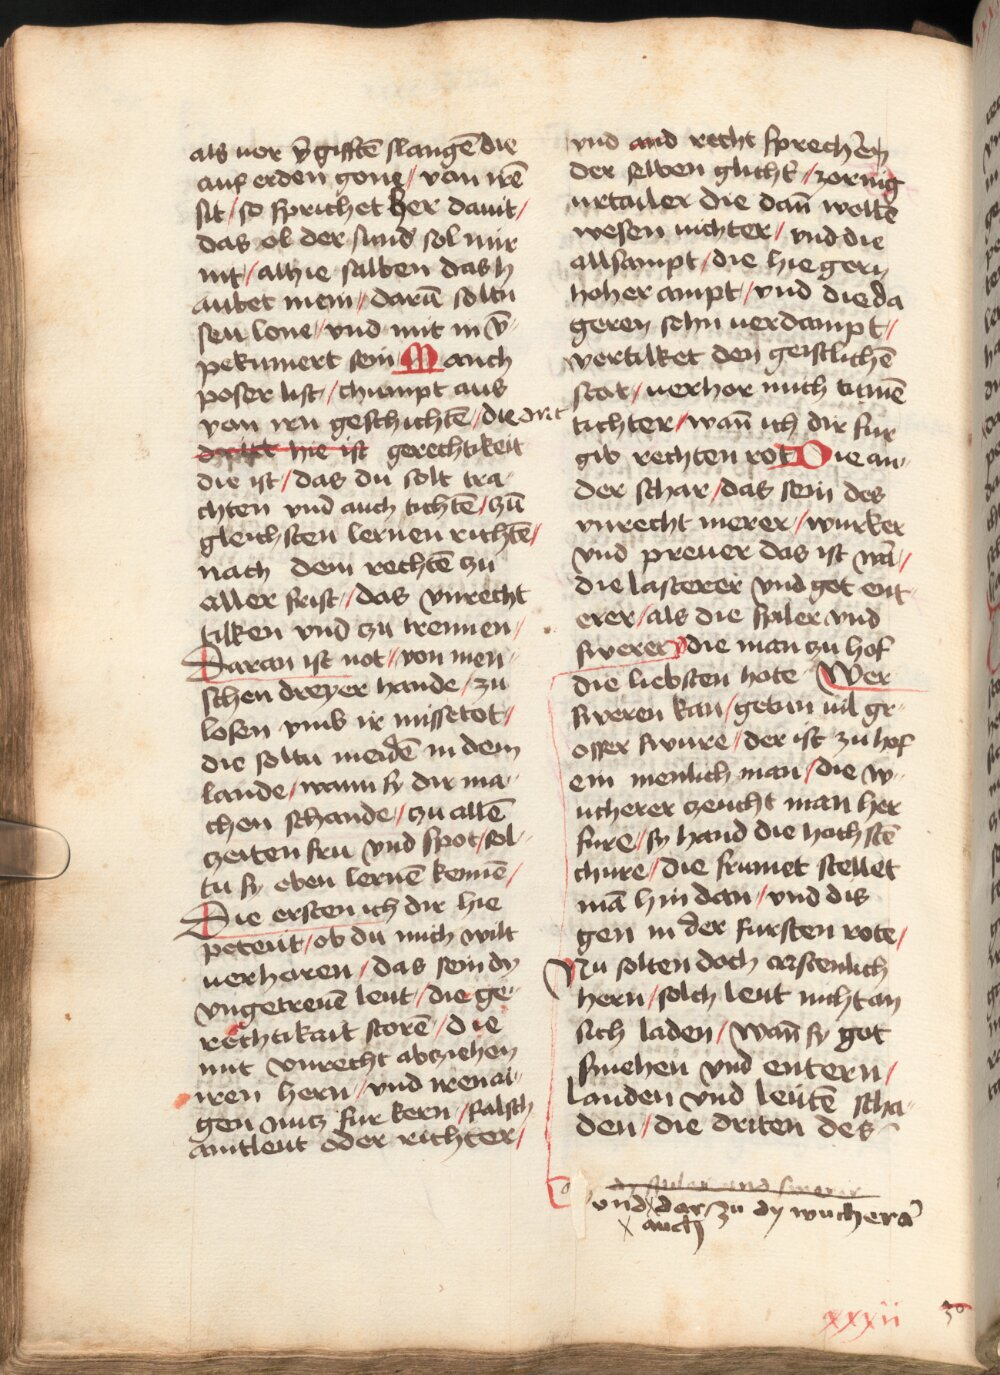 als vor v̄gifftē slangē die
auf erden gone / von irē
sit / so sprichet her dauit /
das ol der sund sol mir
nit / alhie salben das h
aubet mein / darū soltu
sen lone / vnd mit in v̄-
pekumert sein Manch
poser list / chumpt aus
von irn geschichtē / die art
hie ist gerechtikeit
die ist / das du solt tra
chten vnd auch tichtē / zū
gleichsten lernen richtē /
nach dem rechtē zu
aller frist / das vnrecht
tilken vnd zu trennen /
Daran ist not / von men-
schen dreyer hande / zu
losen vmb ir missetot /
die soltu meidē in dem
lande / wann sy dir ma-
chen schande / zu allē
zeiten fru vnd spot / sol-
tu sy eben lernē kennē /
Die ersten ich dir hie
peteut / ob du mich wilt
verhoren / das sein dy
vngetreuē leut / die ge-
rechtikait storē / die
mit vnrecht abziehen
iren hern / vnd iren ai-
gen nutz fur kern / falsch
amtleut oder richter /
vnd and recht sprechen
der selben glicht / zornig
urtailer die dan̄ woltē
wesen nichter / vnd die
allsampt / die hie gern
hoher ampt / vnd die da
geren sehn verdampt /
vertilket den geistlichē
stat / verhor mich tumē
tichter / wan̄ ich dir fur
gib rechten rot Die an-
der schar / das sein des
vnrecht merer / wurker
vnd prever das ist
die lasterer vnd got ent-
erer / als die spiler vnd
swerer die man zu hof
die liebsten hote Wer
sweren kan / getun vil gr-
osser swure / der ist zu hof
ein menlich man / die w-
ucherer zeucht man her
fure / sy hand die hochstē
chure / die frumet stellet
mā hin dan / vnd dis
gen in der fursten rote /
Nu solten doch cristenlich
hern / solch leut nicht an
sich laden / wan̄ sy got
smehen vnd entern /
landen vnd leutē scha-
den / die driten des
dy spiler und swerer
und dar zu dy wucherā
auch
xxxii
30